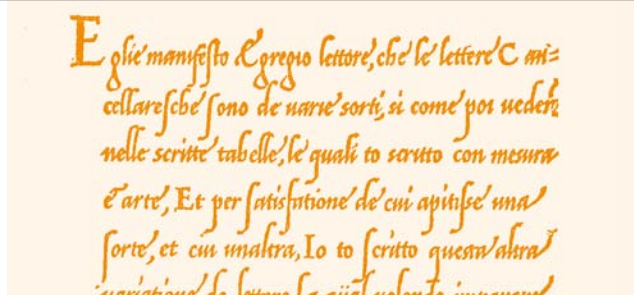 Eglie manifesto Egregio lettore, che le lettere Can=
cellaresche sono de uarie sorti, si come poi ueder
nelle scritte tabelle, le quali to scritto con mesura
& arte, Et per satisfatione de cui apitisse una
sorte, et cui unaltra, Io to scritto questa altra
uariatione de lettere la qual volendo imparare